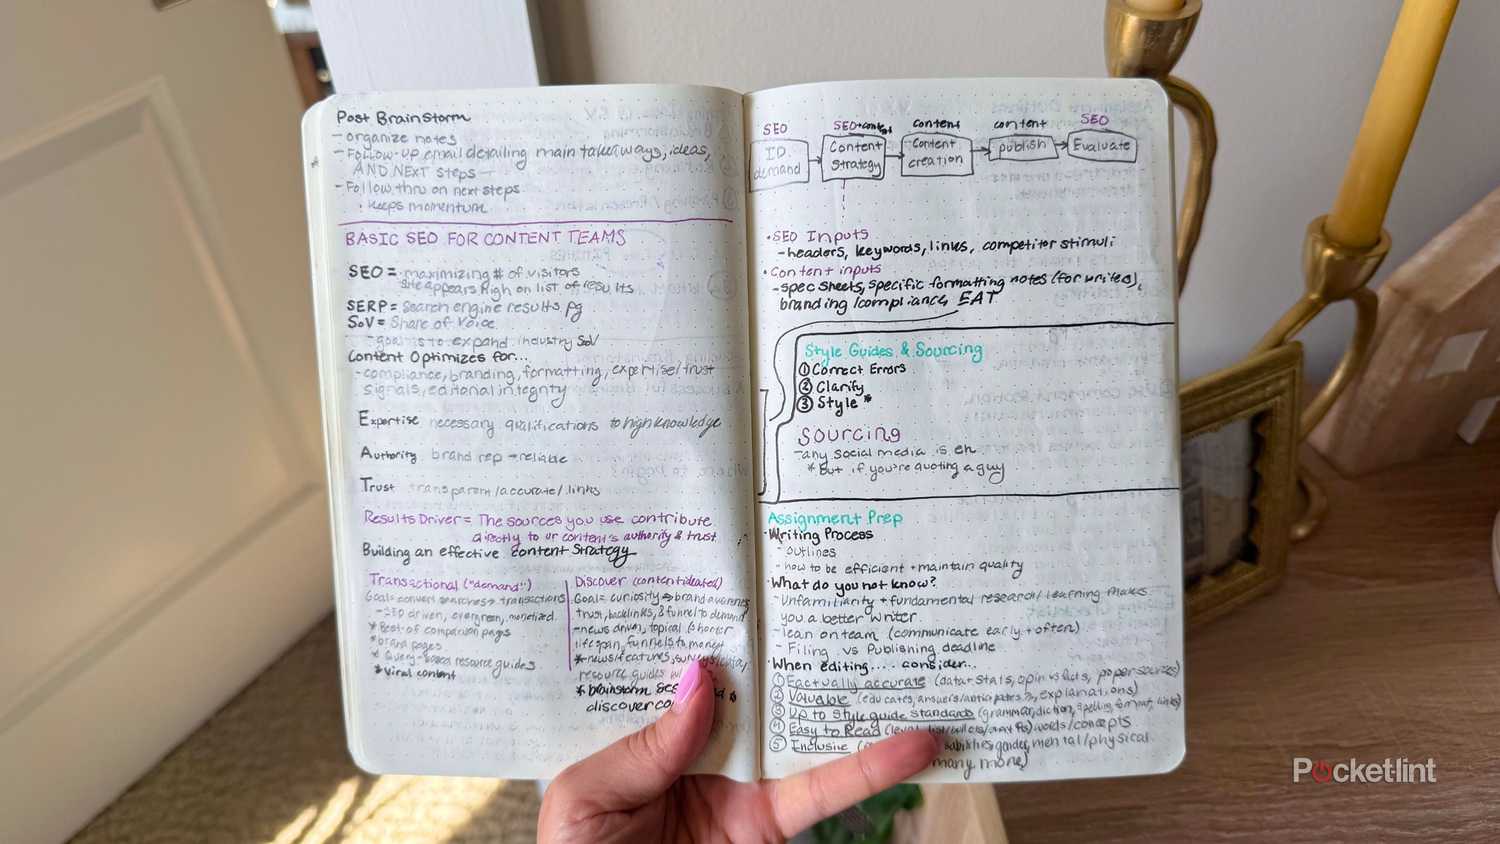 Post Brainstorm
- organize notes
- Follow-up email detailing main takeaways, ideas,
AND NEXT steps -
- Follow thru on next steps
· keeps momentum
BASIC SEO FOR CONTENT TEAMS
SEO = maximizing # of visitors
site appears high on list of results
SERP = search engine results pg
SoV = Share of Voice
- goal is to expand industry SoV
Content Optimizes for...
- compliance, branding, formatting, expertise/trust
signals, editorial integrity
Expertise necessary qualifications to high knowledge
Authority brand rep → reliable
Trust transparent/accurate/links
Results Driver = The sources you use contribute
directly to ur content's authority & trust
Building an effective content strategy
Transactional ("demand")
Goal = convert searches → transactions
- SEO driven, evergreen, monetized
* Best-of comparison pages
* brand pages
* Query-based resource guides
* Viral content
Discover (content ideated)
Goal = curiosity → brand awareness
trust, backlinks, & funnel to demand
- news driven, topical (shorter
lifespan, funnels to money
* news/features,
resource guides
* brainstorm
discover
SEO SEO+content content content SEO
ID demand → Content Strategy → Content creation → publish → Evaluate
· SEO Inputs
- headers, keywords, links, competitor stimuli
· Content inputs
- spec sheets, specific formatting notes (for writers),
branding/compliance, EAT
Style Guides & Sourcing
① Correct Errors
② Clarify
③ Style *
Sourcing
- any social media is eh
* But if you're quoting a guy
Assignment Prep
· Writing Process
- outlines
- how to be efficient + maintain quality
· What do you not know?
- Unfamiliarity + fundamental research/learning makes
you a better writer
- lean on team (communicate early + often)
- Filing vs Publishing deadline
· When editing.... consider...
① Factually accurate (data + stats, opin vs facts,
② Valuable (educates, answers/anticipates ?s, explanations)
③ Up to style guide standards (grammar, diction, spelling, format, links)
④ Easy to Read words/concepts
⑤ Inclusive gender, mental/physical
many more)
Pocketlint